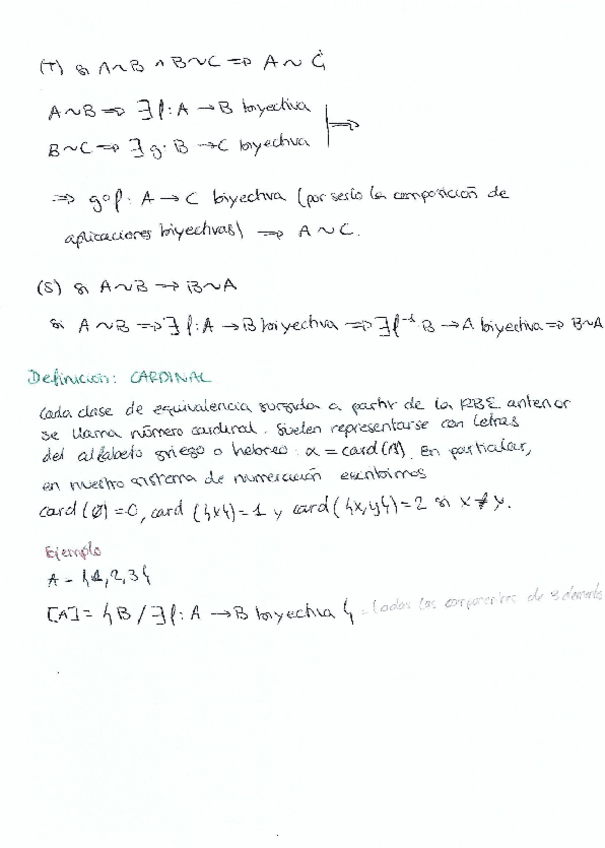 (T) si A~B ∧ B~C ⇒ A~C¿
A~B ⇒ ∃ f: A → B biyectiva
B~C ⇒ ∃ g: B → C biyectiva
⇒ g∘f: A → C biyectiva (por serlo la composición de
aplicaciones biyectivas) ⇒ A~C.
(S) si A~B → B~A
si A~B ⇒ ∃ f: A → B biyectiva ⇒ ∃ f⁻¹ B → A biyectiva ⇒ B~A
Definición: CARDINAL
Cada clase de equivalencia surgida a partir de la RBE anterior
se llama número cardinal. Suelen representarse con letras
del alfabeto griego o hebreo: α = card(A). En particular,
en nuestro sistema de numeración escribimos
card(∅)=0, card({x})=1 y card({x,y})=2 si x≠y.
Ejemplo
A = {1,2,3}
[A] = {B / ∃ f: A → B biyectiva} = {todos los conjuntos de 3 elementos